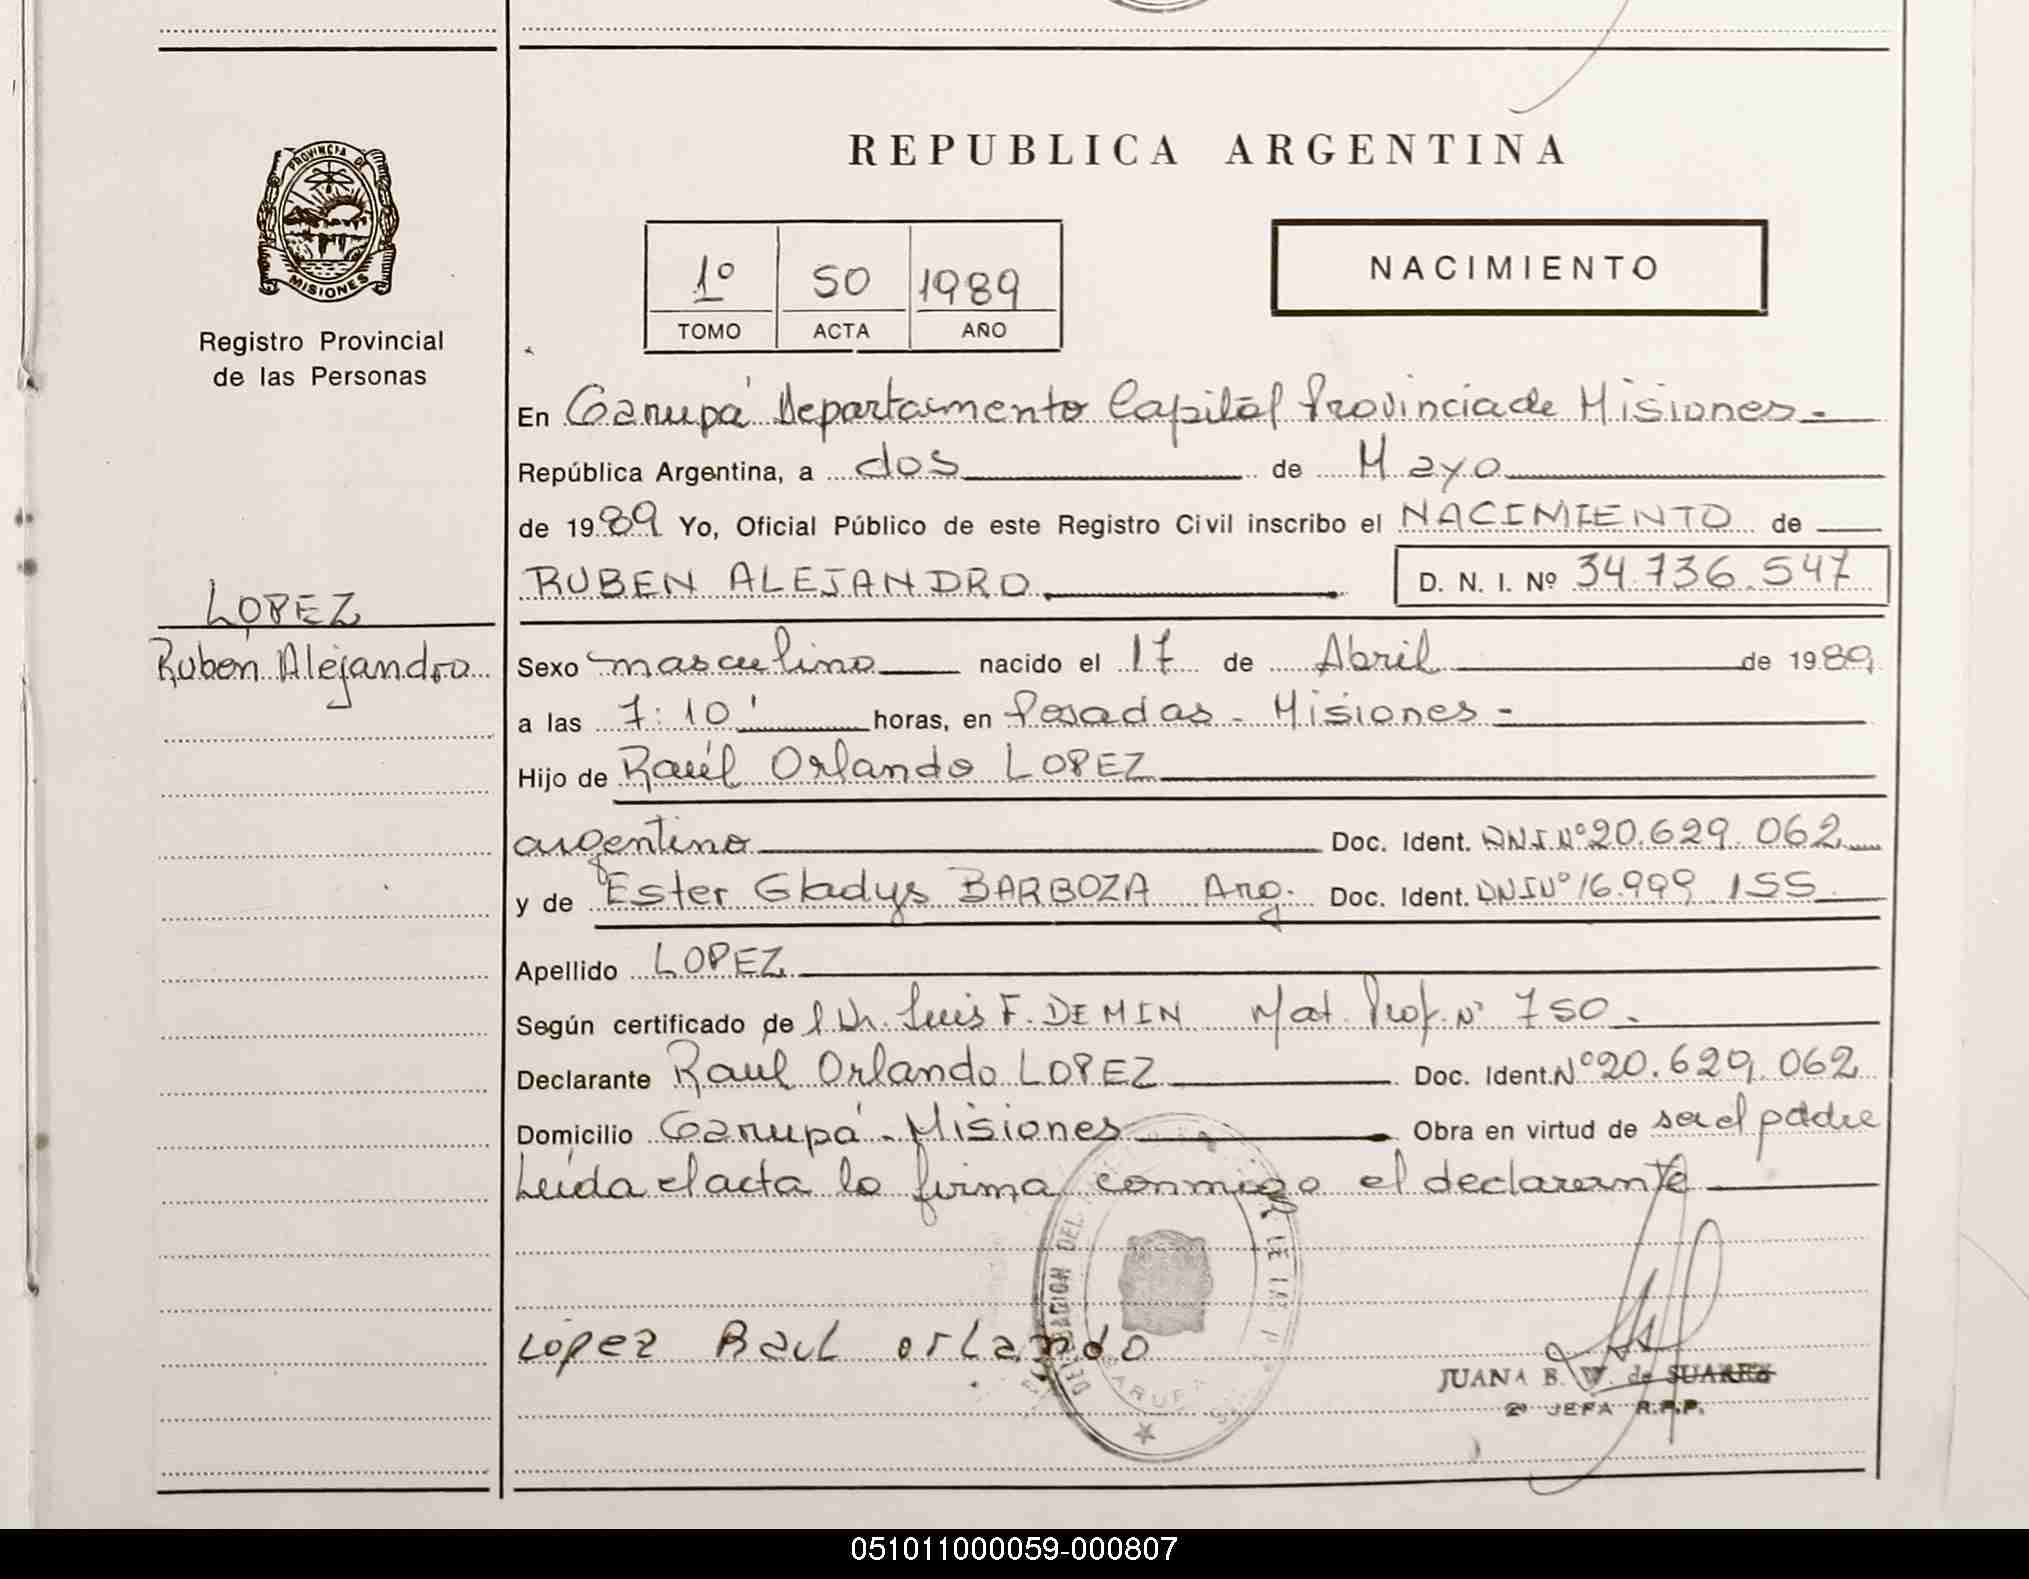 REPUBLICA ARGENTINA
PROVINCIA DE
MISIONES
Registro Provincial
de las Personas
1º 50 1989
TOMO ACTA AÑO
NACIMIENTO
En Garupá Departamento Capital Provincia de Misiones.-
República Argentina, a dos de Mayo
de 1989 Yo, Oficial Público de este Registro Civil inscribo el NACIMIENTO de
RUBEN ALEJANDRO D. N. I. Nº 34.736.547
LOPEZ
Ruben Alejandro
Sexo masculino nacido el 17 de Abril de 1989,
a las 7:10' horas, en Posadas - Misiones -
Hijo de Raúl Orlando LOPEZ
argentino Doc. Ident. DNI Nº 20.629.062
y de Ester Gladys BARBOZA Arg. Doc. Ident. DNI Nº 16.999.155
Apellido LOPEZ
Según certificado de l Dr. Luis F. DEMIN Mat. Prof. Nº 750.
Declarante Raul Orlando LOPEZ Doc. Ident. Nº 20.629.062
Domicilio Garupá - Misiones Obra en virtud de ser el padre
Leída el acta la firma conmigo el declarante
DEL
GARUPA
Lopez Raul orlando
JUANA B. W. de SUAREZ
2º JEFA R.P.P.
051011000059-000807